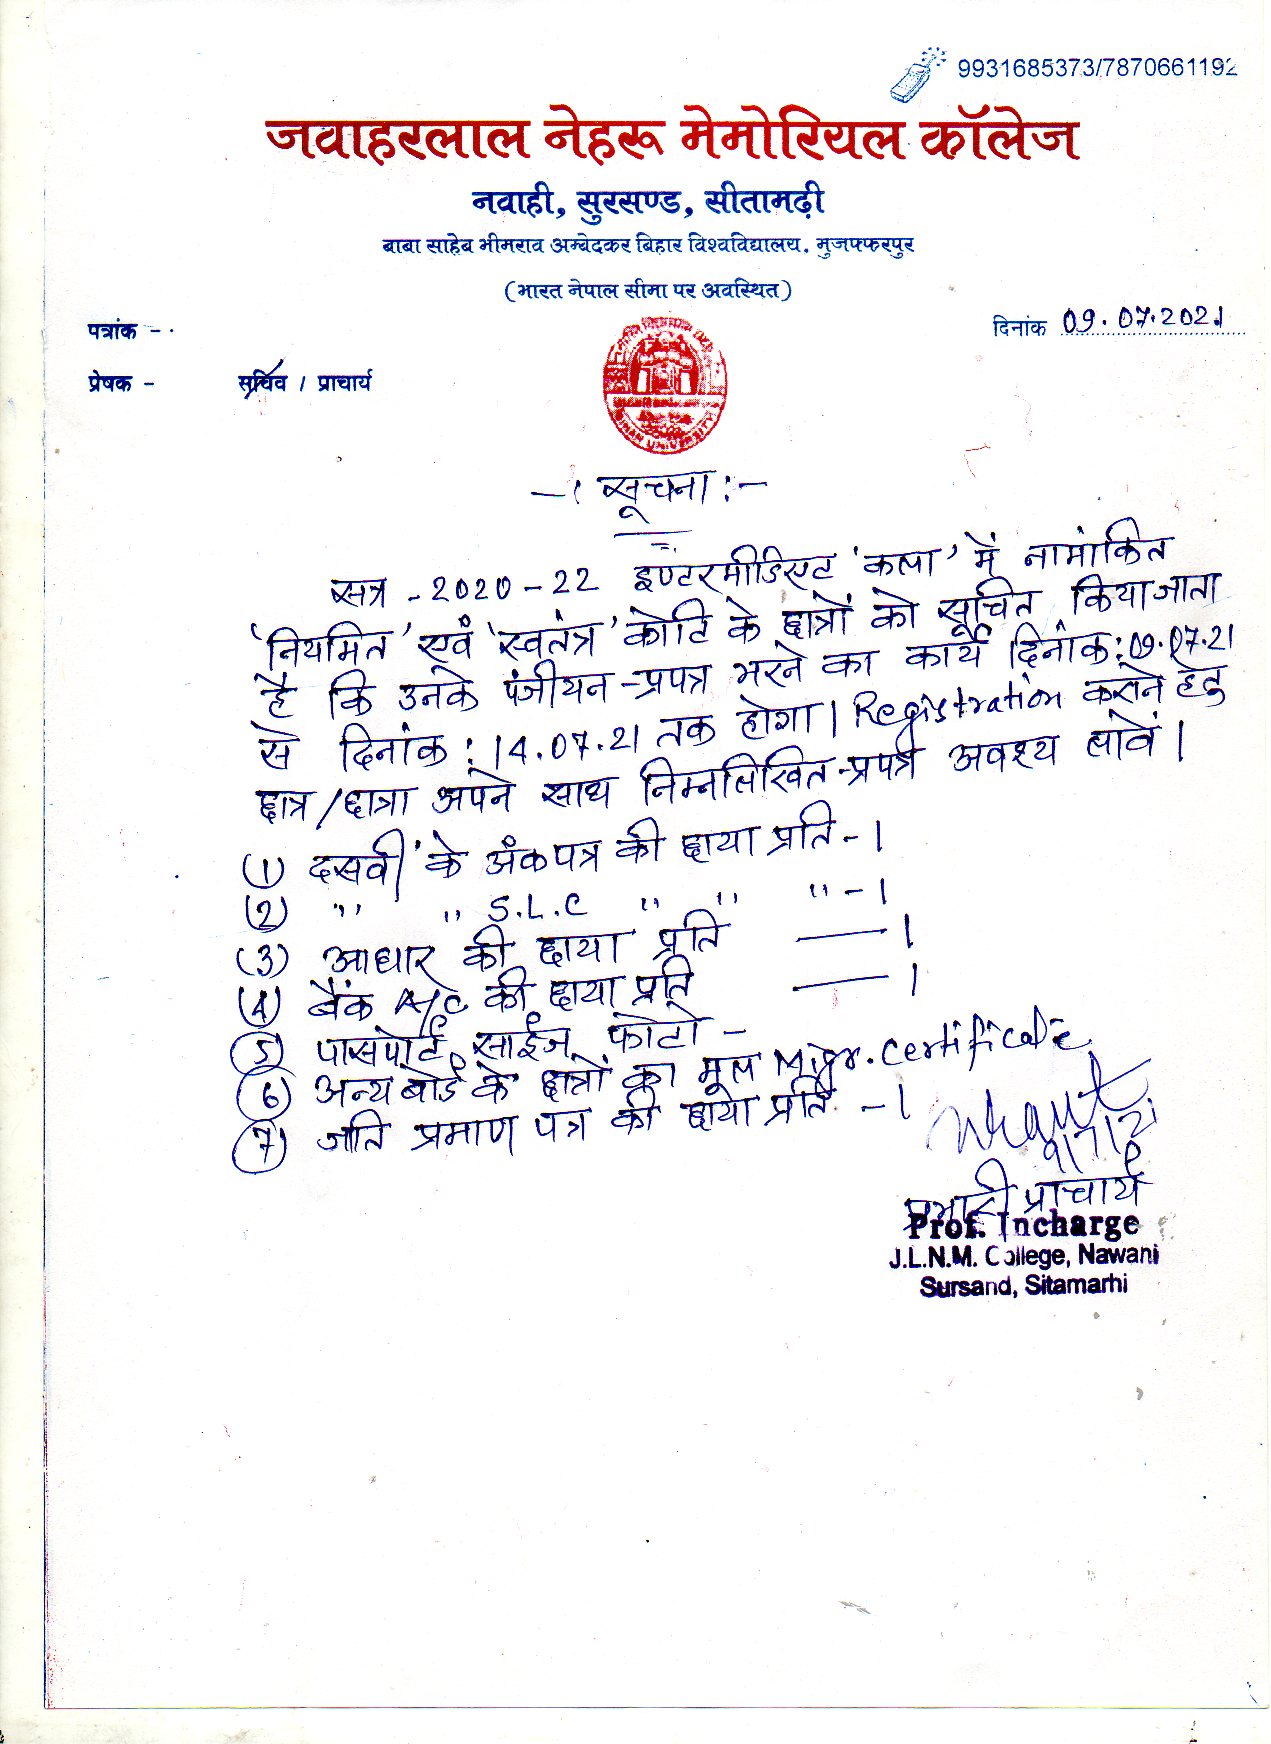 9931685373/7870661192
जवाहरलाल नेहरू मेमोरियल कॉलेज
नवाही, सुरसण्ड, सीतामढ़ी
बाबा साहेब भीमराव अम्बेदकर बिहार विश्वविद्यालय, मुजफ्फरपुर
(भारत नेपाल सीमा पर अवस्थित)
पत्रांक -
दिनांक 09.07.2021
प्रेषक - सचिव / प्राचार्य
BIHAR UNIVERSITY
-: सूचना :-
सत्र - 2020-22 इण्टरमीडिएट 'कला' में नामांकित
'नियमित' एवं 'स्वतंत्र' कोटि के छात्रों को सूचित किया जाता
है कि उनके पंजीयन-प्रपत्र भरने का कार्य दिनांक: 09.07.21
से दिनांक: 14.07.21 तक होगा। Registration कराने हेतु
छात्र/छात्रा अपने साथ निम्नलिखित-प्रपत्र अवश्य लावें।
(1) दसवीं के अंक पत्र की छाया प्रति - 1
(2) " " S.L.C " " " - 1
(3) आधार की छाया प्रति — 1
(4) बैंक A/C की छाया प्रति — 1
(5) पासपोर्ट साईज फोटो -
(6) अन्य बोर्ड के छात्रों का मूल Migr. Certificate
(7) जाति प्रमाण पत्र की छाया प्रति - 1
9/7/21
प्रभारी प्राचार्य
Prof. Incharge
J.L.N.M. College, Nawani
Sursand, Sitamarhi